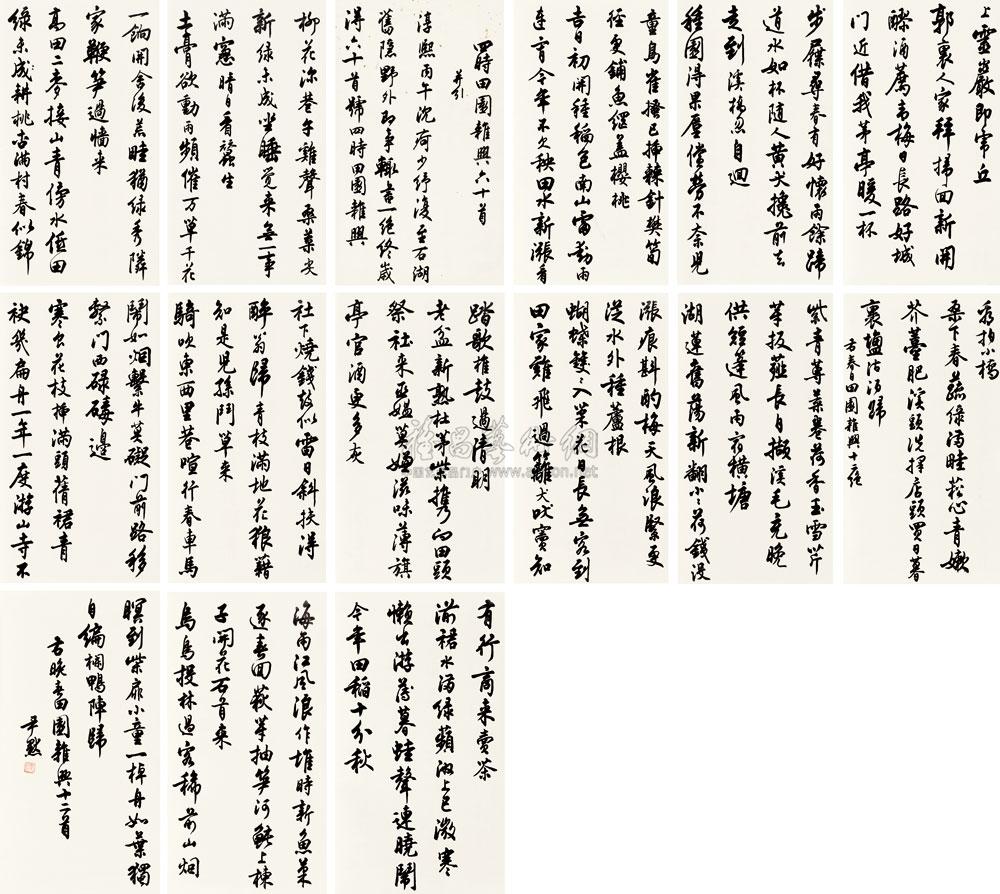 四時田園雜興六十首
并引
淳熙丙午沈疴少紓復至石湖
舊隱野外即事輒書一絕終歲
得六十首號四時田園雜興
柳花深巷午雞聲桑葉尖
新綠未成坐睡覺來無一事
滿窗晴日看蠶生
土膏欲動雨頻催万草千花
一餉開舍後荒畦猶綠秀隣
家鞭筍過牆來
高田二麥接山青傍水低田
綠未成耕桃杏滿村春似錦
踏歌椎鼓過清明
老盆新熟杜茅柴攜向田頭
祭社來巫媼莫嫌滋味薄旗
亭官酒更多灰
社下燒錢鼓似雷日斜扶得
醉翁歸青枝滿地花狼藉
知是兒孫鬥草來
騎吹東西里巷喧行春車馬
鬧如烟繫牛莫礙門前路移
繫門西碌碡邊
寒食花枝插滿頭蒨裙青
袂幾扁舟一年一度游山寺不
上靈巖即虎丘
郭裏人家拜掃回新開
醪酒薦青梅日長路好城
門近借我茅亭暖一杯
步屧尋春有好懷雨餘蹄
道水如杯隨人黃犬攙前去
走到溪橋忽自迴
種園得果廑償勞不奈兒
童鳥雀搔已插棘針樊筍
徑更鋪魚網蓋櫻桃
吉日初開種稻包南山雷動雨
連宵今年不欠秧田水新漲看
看拍小橋
桑下春蔬綠滿畦菘心青嫩
芥薹肥溪頭洗擇店頭買日暮
裹鹽沽酒歸
右春日田園雜興十二絕
紫青蓴菜卷荷香玉雪芹
芽拔薤長自擷溪毛充晚
供短篷風雨宿橫塘
湖蓮舊蕩新翻小荷錢沒
漲痕斟酌梅天風浪緊更
從水外種蘆根
蝴蝶雙々入菜花日長無客到
田家雞飛過籬犬吠竇知
有行商來賣茶
湔裙水滿綠蘋洲上巳微寒
懶出游薄暮蛙聲連曉鬧
今年田稻十分秋
海雨江風浪作堆時新魚菜
逐春回荻芽抽筍河魨上楝
子開花石首來
烏鳥投林過客稀前山烟
暝到柴扉小童一棹舟如葉獨
自編欄鴨陣歸
右晚春田園雜興十二首
尹默
雅昌藝術網